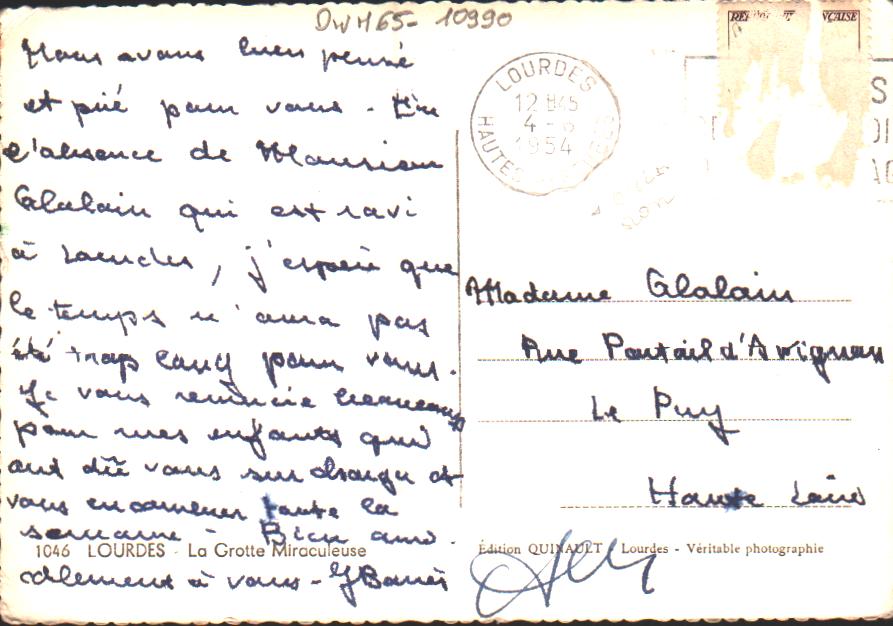 DWH65-10990
Nous avons bien pensé
et prié pour vous - En
l'absence de Monsieur
Glalain qui est ravi
à Lourdes, j'espère que
le temps n'aura pas
été trop long pour vous.
Je vous remercie beaucoup
pour mes enfants qui
ont dû vous surcharger et
vous encombrer toute la
semaine - Bien ami-
calement à vous -
1046 LOURDES - La Grotte Miraculeuse
LOURDES
12 H45
4 -
1954
HAUTES
FRANÇAISE
Madame Glalain
Rue Portail d'Avignon
Le Puy
Haute Loire
Édition QUINAULT Lourdes - Véritable photographie